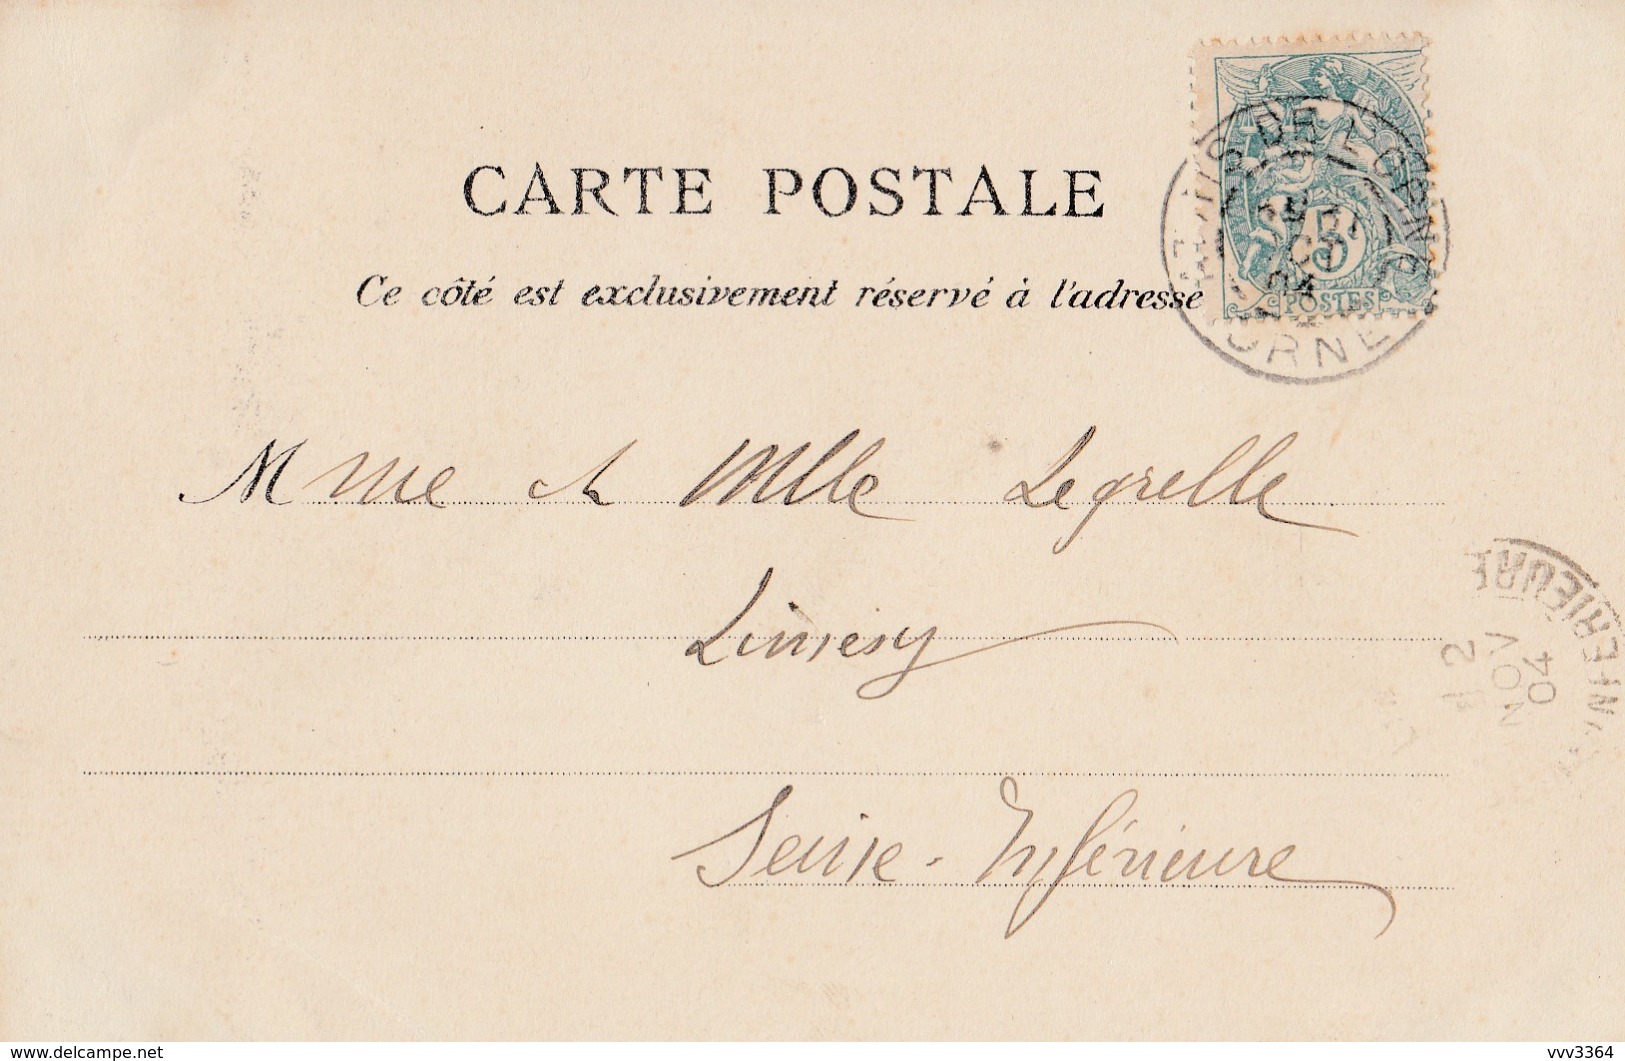 CARTE POSTALE
Ce côté est exclusivement réservé à l'adresse
5
POSTES
ORNE
04
Mme et Mlle Legrelle
Limesy
Seine-Inférieure
RIEURE
2
NOV
04
www.delcampe.net
vvv3364